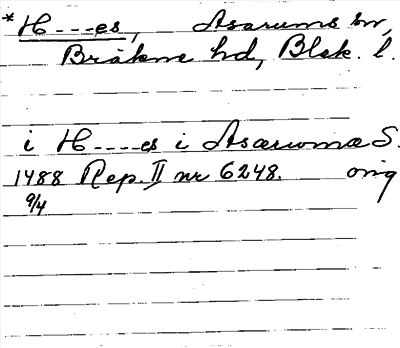 *H---es, Asarums sn,
Bräkne hd, Blek. l.
i H----es i Asarwma S.
1488 Rep. II nr 6248. orig
9/4